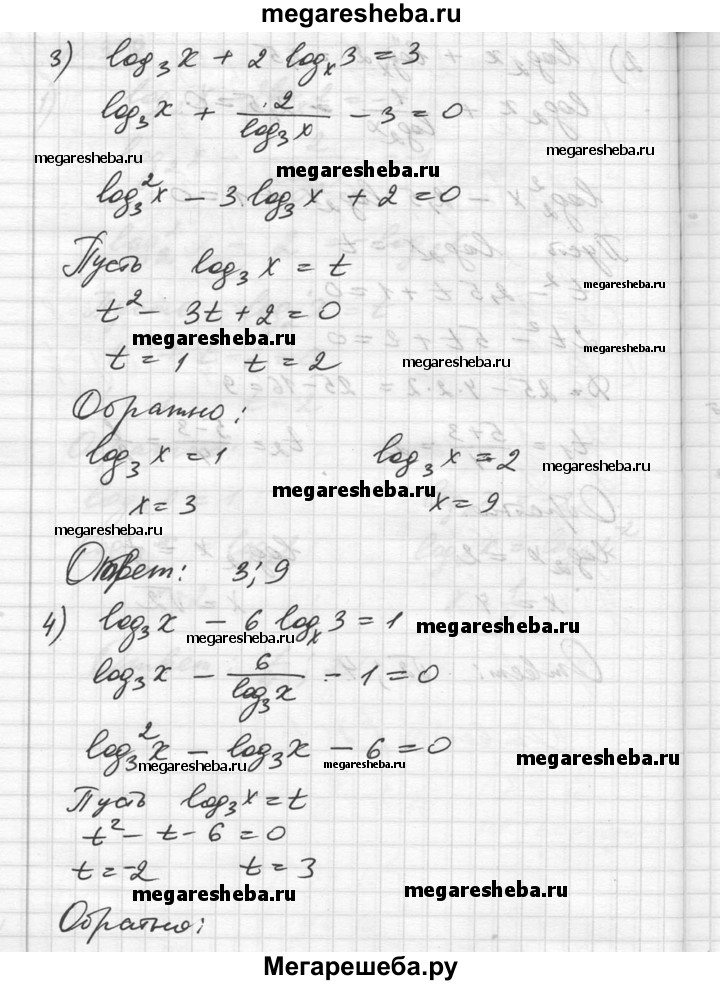 megaresheba.ru
3) log₃x + 2 logₓ3 = 3
log₃x + 2/log₃x - 3 = 0
megaresheba.ru megaresheba.ru megaresheba.ru
log₃²x - 3 log₃x + 2 = 0
Пусть log₃x = t
megaresheba.ru
t² - 3t + 2 = 0
megaresheba.ru megaresheba.ru
t = 1 t = 2 megaresheba.ru
Обратно:
log₃x = 1 log₃x = 2
megaresheba.ru
megaresheba.ru
x = 3 x = 9
megaresheba.ru
Ответ: 3; 9
4) log₃x - 6 logₓ3 = 1
megaresheba.ru megaresheba.ru
log₃x - 6/log₃x - 1 = 0
log₃²x - log₃x - 6 = 0
megaresheba.ru megaresheba.ru megaresheba.ru
Пусть log₃x = t
t² - t - 6 = 0
t = -2 t = 3
megaresheba.ru megaresheba.ru
Обратно:
Мегарешеба.ру